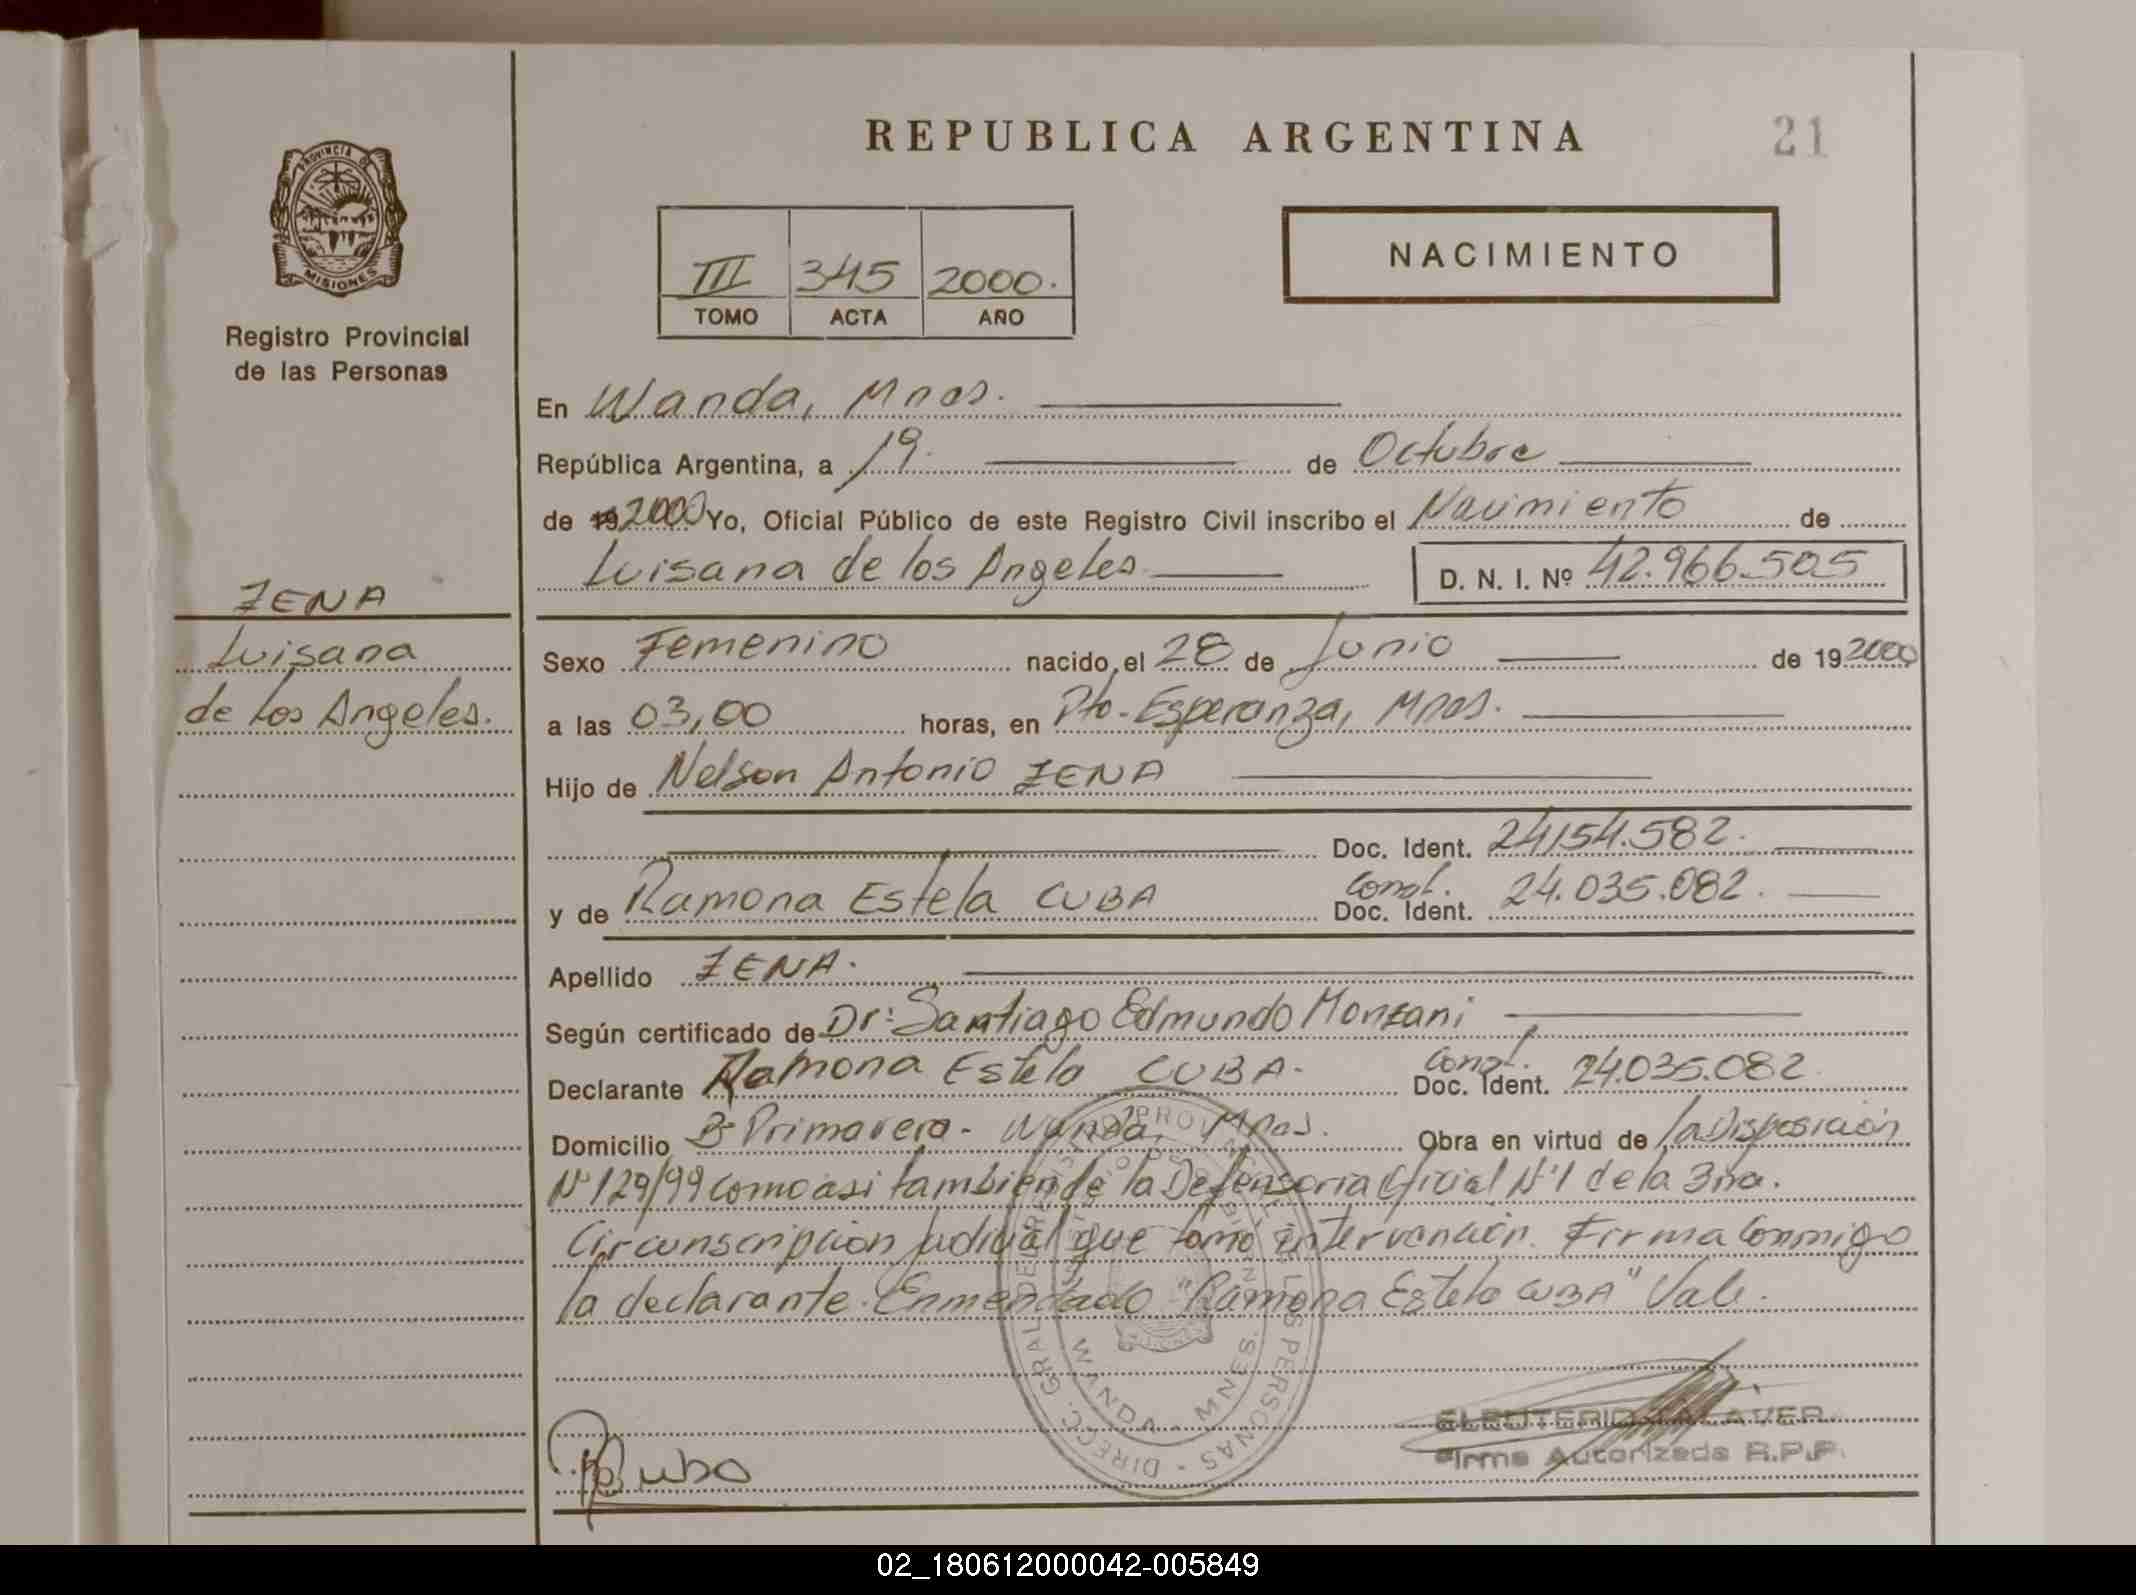 REPUBLICA ARGENTINA
21
PROVINCIA DE
MISIONES
Registro Provincial
de las Personas
III 345 2000.
TOMO ACTA AÑO
NACIMIENTO
En Wanda, Mnes.
República Argentina, a 19. de Octubre
de 19 2000 Yo, Oficial Público de este Registro Civil inscribo el Nacimiento de
Luisana de los Angeles D. N. I. Nº 42.966.505
ZENA
Luisana
de los Angeles.
Sexo Femenino nacido, el 28 de Junio de 19 2000
a las 03,00 horas, en Pto. Esperanza, Mnes.
Hijo de Nelson Antonio ZENA
Doc. Ident. 24.154.582.
y de Ramona Estela CUBA Doc. Ident. 24.035.082.
Apellido ZENA.
Según certificado de Dr: Santiago Edmundo Monzani
Declarante Ramona Estela CUBA. Doc. Ident. 24.035.082
Domicilio Bº Primavera - Wanda, Mnes. Obra en virtud de la Disposición
Nº 129/99 como asi tambien de la Defensoria Oficial Nº 1 de la 3ra.
Circunscripción judicial que tomó intervención. Firma conmigo
la declarante. Enmendado "Ramona Estela CUBA" Vale.
DIRECC. GRAL. DE REGISTRO PROVINCIAL DE LAS PERSONAS
WANDA - MNES.
Firma Autorizada R.P.P.
02_180612000042-005849